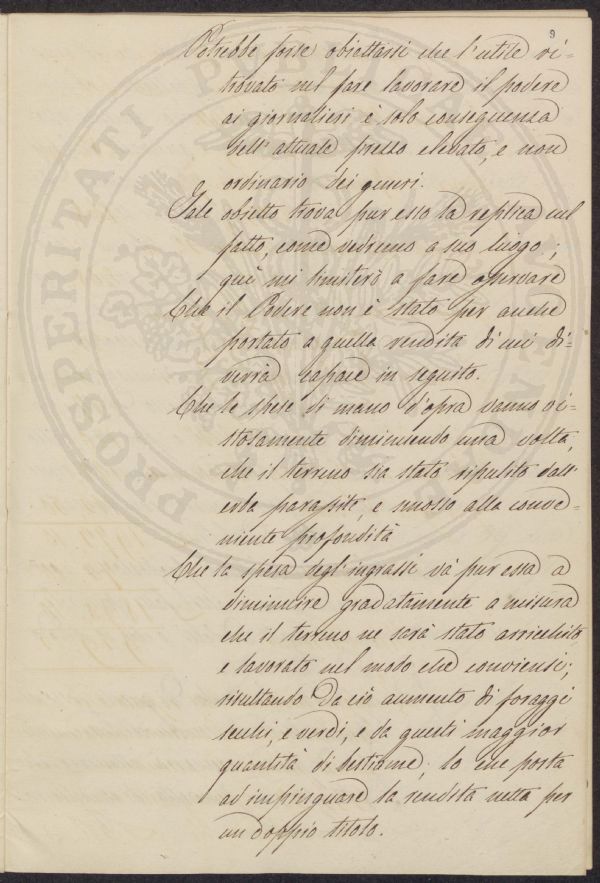 9
Potrebbe forse obiettarsi che l'utile ri=
trovato nel fare lavorare il podere
ai giornalieri è solo conseguenza
dell'attuale prezzo elevato, e non
ordinario dei generi.
Tale obietto trova pur esso la replica nel
fatto, come vedremo a suo luogo;
quì mi limiterò a fare osservare
Che il Podere non è stato per anche
portato a quella rendita di cui di=
verrà capace in seguito.
Che le spese di mano d'opra vanno vi=
stosamente diminuendo una volta,
che il terreno sia stato ripulito dall'
erbe parassite, e smosso alla conve=
niente profondità
Che la spesa degl'ingrassi và pur essa a
diminuire gradatamente a misura
che il terreno ne sarà stato arricchito
e lavorato nel modo che conviensi;
risultando da ciò aumento di foraggi
secchi, e verdi, e da questi maggior
quantità di bestiame; lo che porta
ad impinguare la rendita netta per
un doppio titolo.
PROSPERITATI